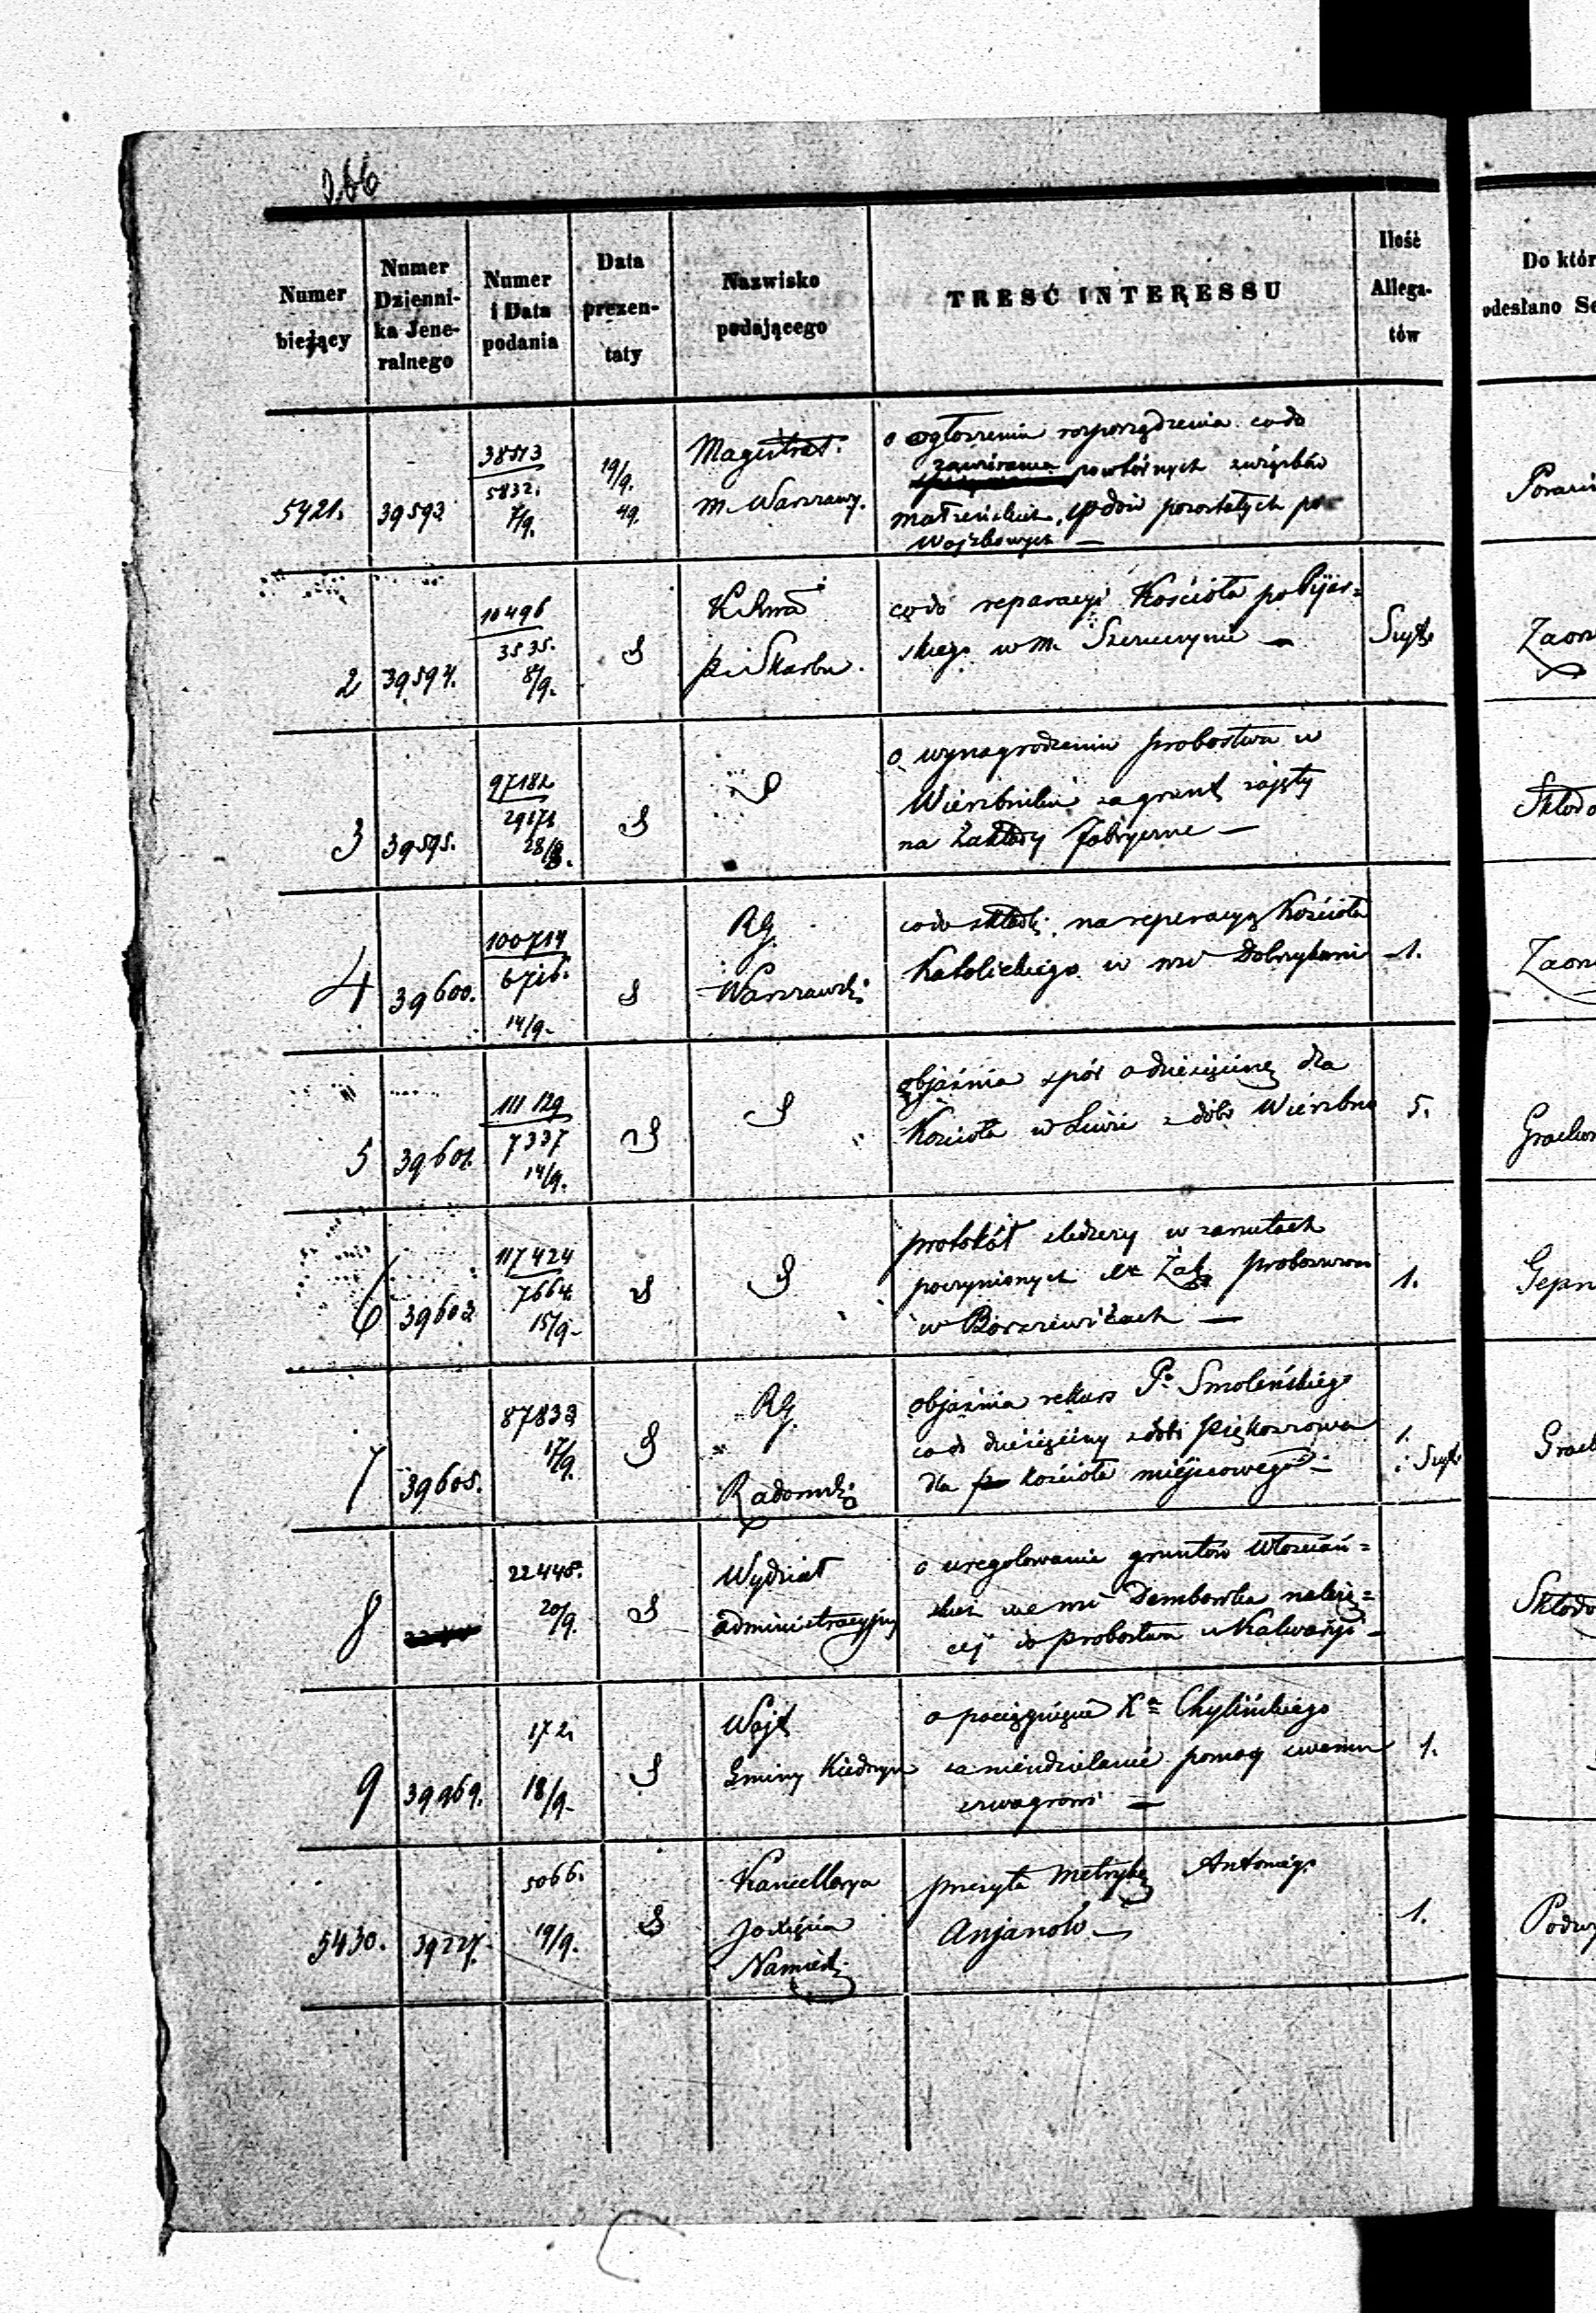 366
Numer bieżący
Numer Dzienni-ka Jene-ralnego
Numer i Data podania
Data prezen-taty
Nazwisko podającego
TREŚĆ INTERESSU
Ilość Allega-tów
Do któr
odesłano Se
5421. 39593 38513 5832. 7/9. 19/9. 49. Magistrat m. Warszawy.
o ogłoszeniu rozporządzenia co do
zawierania powtórnych związków
małżeńskich, wdów pozostałych po
Wojskowych —
2 39594. 10496 3535. 8/9. P. i Skarbu.
co do reparacyi Kościoła po Pijar=
skiego w m. Szczuczynie —
Zaors
3 39595. 97182 28/8.
o wynagrodzenie probostwa w
Wierzbniku za grunt zajęty
na Zakłady Fabryczne —
Skłodo
4 39600. 100714 6716. 14/9. RG. Warszawski
co do składki na reperacyą Kościoła
Katolickiego w mie Dobrzykowie 1.
Zaors
5 39601. 111129 7337 14/9.
objaśnia spór o dziesięcinę dla
Kościoła w Liwie z dóbr Wierzbno 5.
6 39603. 117424 7664. 15/9.
protokół śledczy w zarzutach
poczynionych Xa Żak proboszczowi 1.
w Borszewicach —
7 39605. 87833 17/9. RG. Radomski
objaśnia rekurs Po Smoleńskiego
co do dziesięciny z dóbr Piękoszowa 1.
dla kościoła miejscowego —
8 22448. 20/9. Wydział administracyjny
o uregulowanie gruntów Włościań=
skich we wsi Dembowka należą=
cej do probostwa w Kalwaryi —
Skłodo
9 39969. 172. 18/9. Wójt Gminy Kiedrzyn
o pociągnięcie Xa Chylińskiego
za nieudzielanie pomocy swemu 1.
szwagrowi —
5430. 39227. 5066. 19/9. Kancellarya JO Xięcia Namiest.
przesyła Metrykę Antoniego
Anjanoło — 1.